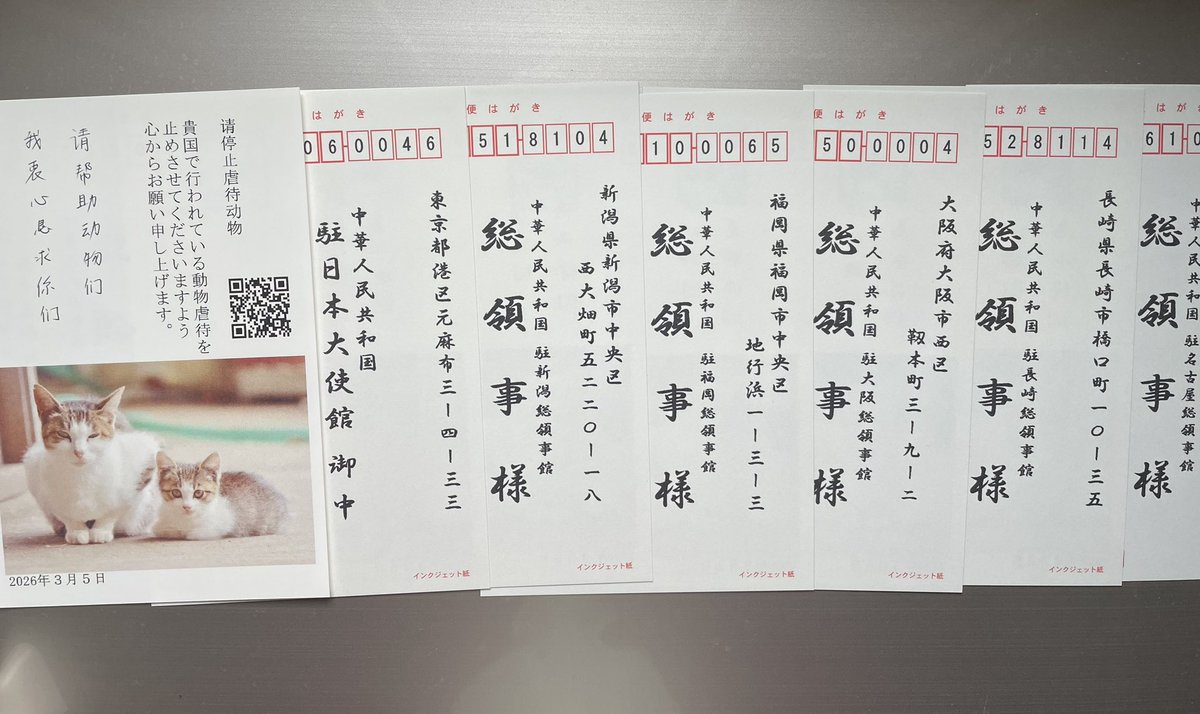 请停止虐待动物
貴国で行われている動物虐待を
止めさせてくださいますよう
心からお願い申し上げます。
请帮助动物们
我衷心恳求你们
2026年3月5日
はがき
060046
東京都港区元麻布三ー四ー三三
中華人民共和国
駐日本大使館 御中
インクジェット紙
便はがき
518104
新潟県新潟市中央区
西大畑町五二二〇ー一八
中華人民共和国 駐新潟総領事館
総領事様
インクジェット紙
便はがき
100065
福岡県福岡市中央区
地行浜一ー三ー三
中華人民共和国 駐福岡総領事館
総領事様
インクジェット紙
便はがき
500004
大阪府大阪市西区
靱本町三ー九ー二
中華人民共和国 駐大阪総領事館
総領事様
インクジェット紙
はがき
528114
長崎県長崎市橋口町一〇ー三五
中華人民共和国 駐長崎総領事館
総領事様
インクジェット紙
はがき
610
中華人民共和国 駐名古屋総領事館
総領事様